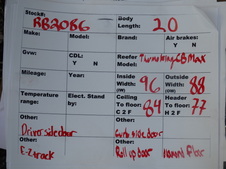 Stock#: Body
RB3086 Length 20
Make: Model: Brand Air brakes:
Y N
Gvw: CDL: Reefer
Y N Model:
Mileage: Year: Inside Outside
Width: 96 Width: 88
Temperature Elect. Stand Ceiling Header
range: by: To floor: 84 To floor: 77
C 2 F H 2 F
Other: Other: Other:
Driver side door Curb side door
Other: Other:
E-Z track Roll up door